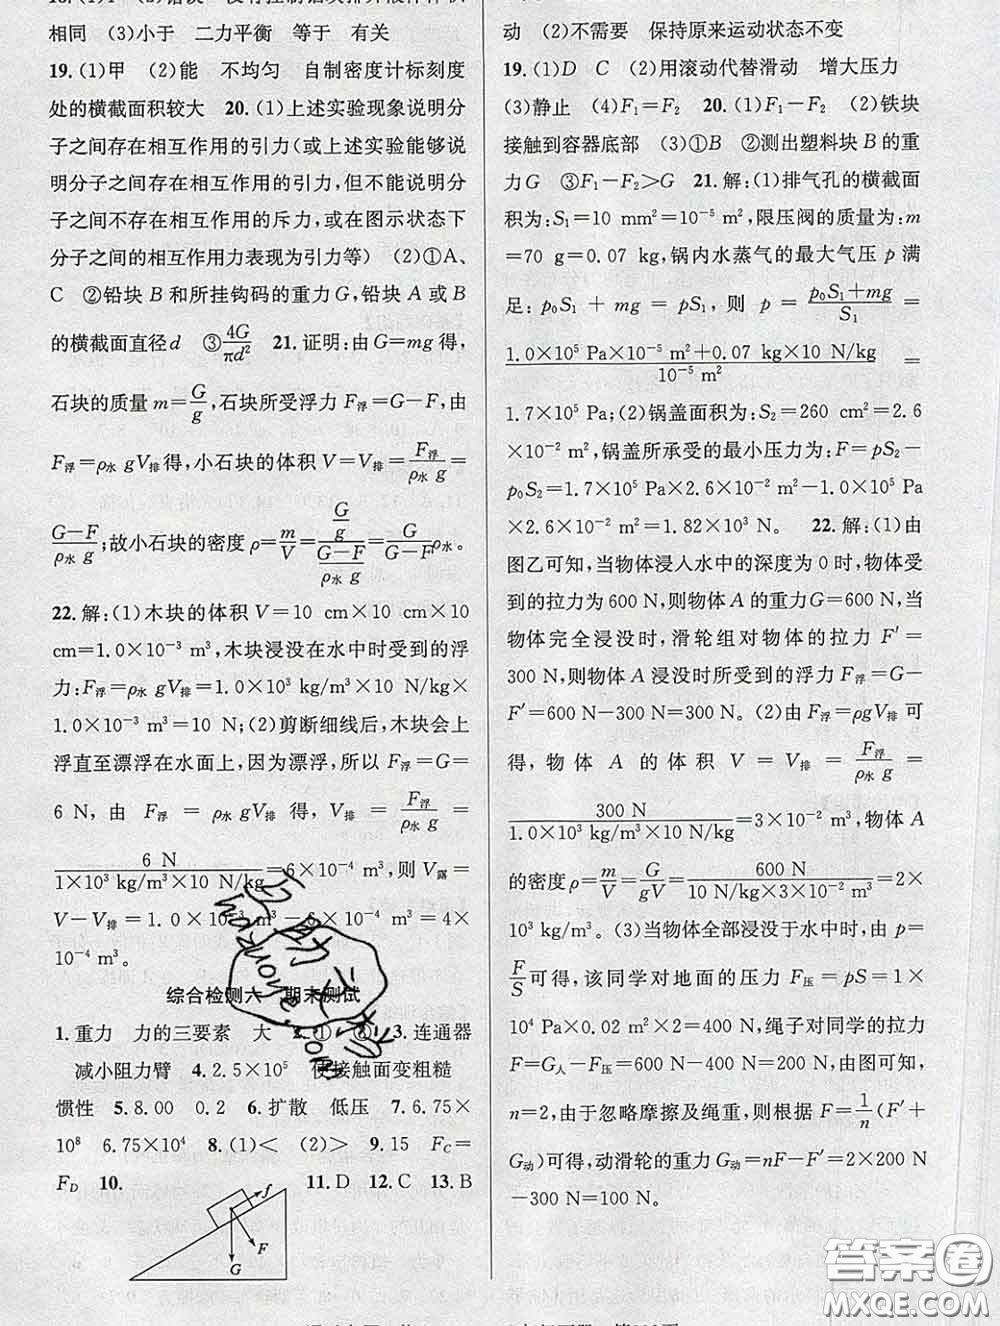 相同　(3)小于　二力平衡　等于　有关
19.(1)甲　(2)能　不均匀　自制密度计标刻度
处的横截面积较大　20.(1)上述实验现象说明分
子之间存在相互作用的引力(或上述实验能够说
明分子之间存在相互作用的引力,但不能说明分
子之间不存在相互作用的斥力,或在图示状态下
分子之间的相互作用力表现为引力等)　(2)①A、
C　②铅块 B 和所挂钩码的重力 G,铅块 A 或 B
的横截面直径 d　③4G/πd²　21.证明:由 G=mg 得,
石块的质量 m=G/g,石块所受浮力 F浮=G-F,由
F浮=ρ水 gV排得,小石块的体积 V=V排=F浮/ρ水 g=
G-F/ρ水 g;故小石块的密度 ρ=m/V=(G/g)/(G-F/ρ水 g)=G/G-F ρ水。
22.解:(1)木块的体积 V=10 cm×10 cm×10
cm=1.0×10⁻³ m³,木块浸没在水中时受到的浮
力:F浮=ρ水 gV排=1.0×10³ kg/m³×10 N/kg×
1.0×10⁻³ m³=10 N;(2)剪断细线后,木块会上
浮直至漂浮在水面上,因为漂浮,所以 F浮=G=
6 N,由 F浮=ρ水 gV排 得,V排=F浮/ρ水 g=
6 N/1×10³ kg/m³×10 N/kg=6×10⁻⁴ m³,则 V露=
V-V排=1.0×10⁻³ m³-6×10⁻⁴ m³=4×
10⁻⁴ m³。
综合检测六　期末测试
1.重力　力的三要素　大　2.①　②　3.连通器
减小阻力臂　4.2.5×10⁵　使接触面变粗糙
惯性　5.8.00　0.2　6.扩散　低压　7.6.75×
10⁸　6.75×10⁴　8.(1)<　(2)>　9.15　F_C=
F_D　10.　11.D　12.C　13.B
f
F
G
动　(2)不需要　保持原来运动状态不变
19.(1)D　C　(2)用滚动代替滑动　增大压力
(3)静止　(4)F₁=F₂　20.(1)F₁-F₂　(2)铁块
接触到容器底部　(3)①B　②测出塑料块 B 的重
力 G　③F₁-F₂>G　21.解:(1)排气孔的横截面
积为:S₁=10 mm²=10⁻⁵ m²,限压阀的质量为:m
=70 g=0.07 kg,锅内水蒸气的最大气压 p 满
足:p₀S₁+mg=pS₁,则 p=p₀S₁+mg/S₁=
1.0×10⁵ Pa×10⁻⁵ m²+0.07 kg×10 N/kg/10⁻⁵ m²=
1.7×10⁵ Pa;(2)锅盖面积为:S₂=260 cm²=2.6
×10⁻² m²,锅盖所承受的最小压力为:F=pS₂-
p₀S₂=1.7×10⁵ Pa×2.6×10⁻² m²-1.0×10⁵ Pa
×2.6×10⁻² m²=1.82×10³ N。　22.解:(1)由
图乙可知,当物体浸入水中的深度为 0 时,物体受
到的拉力为 600 N,则物体 A 的重力G=600 N,当
物体完全浸没时,滑轮组对物体的拉力 F′=
300 N,则物体 A 浸没时所受到的浮力 F浮=G-
F′=600 N-300 N=300 N。(2)由 F浮=ρgV排 可
得,物体 A 的体积 V=V排=F浮/ρ水 g=
300 N/1.0×10³ kg/m³×10 N/kg=3×10⁻² m³,物体 A
的密度 ρ=m/V=G/gV=600 N/10 N/kg×3×10⁻² m³=2×
10³ kg/m³。(3)当物体全部浸没于水中时,由 p=
F/S可得,该同学对地面的压力 F压=pS=1×
10⁴ Pa×0.02 m²×2=400 N,绳子对同学的拉力
F=G人-F压=600 N-400 N=200 N,由图可知,
n=2,由于忽略摩擦及绳重,则根据 F=1/n(F′+
G动)可得,动滑轮的重力 G动=nF-F′=2×200 N
-300 N=100 N。
答案圈
MXQE.COM